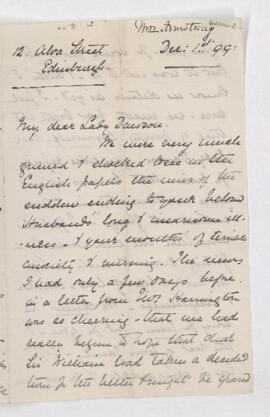 Mrs Armstrong
12. Alva Street
Edinburgh.
Dec: 1st 99.
My dear Lady Dawson.
We were very much
grieved & shocked to see in the
English papers the news of the
sudden ending to your beloved
Husband's long & wearisome ill-
ness - & your months of terrible
anxiety & nursing. The news
I had only a few days before
in a letter from Mrs Harrington
was so cheering - that we had
really begun to hope that dear
Sir William had taken a decided
turn for the better & might be spared